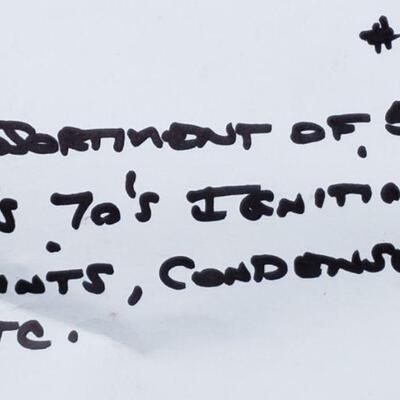 #
SORTMENT OF
S 70'S IGNITIO
INTS, CONDENSE
TC.